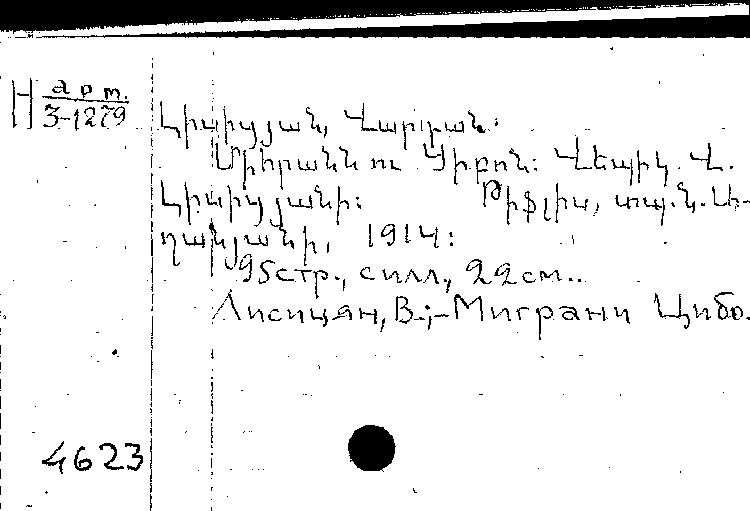 H арт.
3-1279
Լիսիցյան, Վարդան.
Միհրանն ու Ցիբոն: Վեպիկ. Վ.
Լիսիցյանի: Թիֆլիս, տպ. Ն. Ա-
ղանյանի, 1914:
95 стр., силл., 22 см..
Лисицян, В.;-Миграни Цибо.
4623